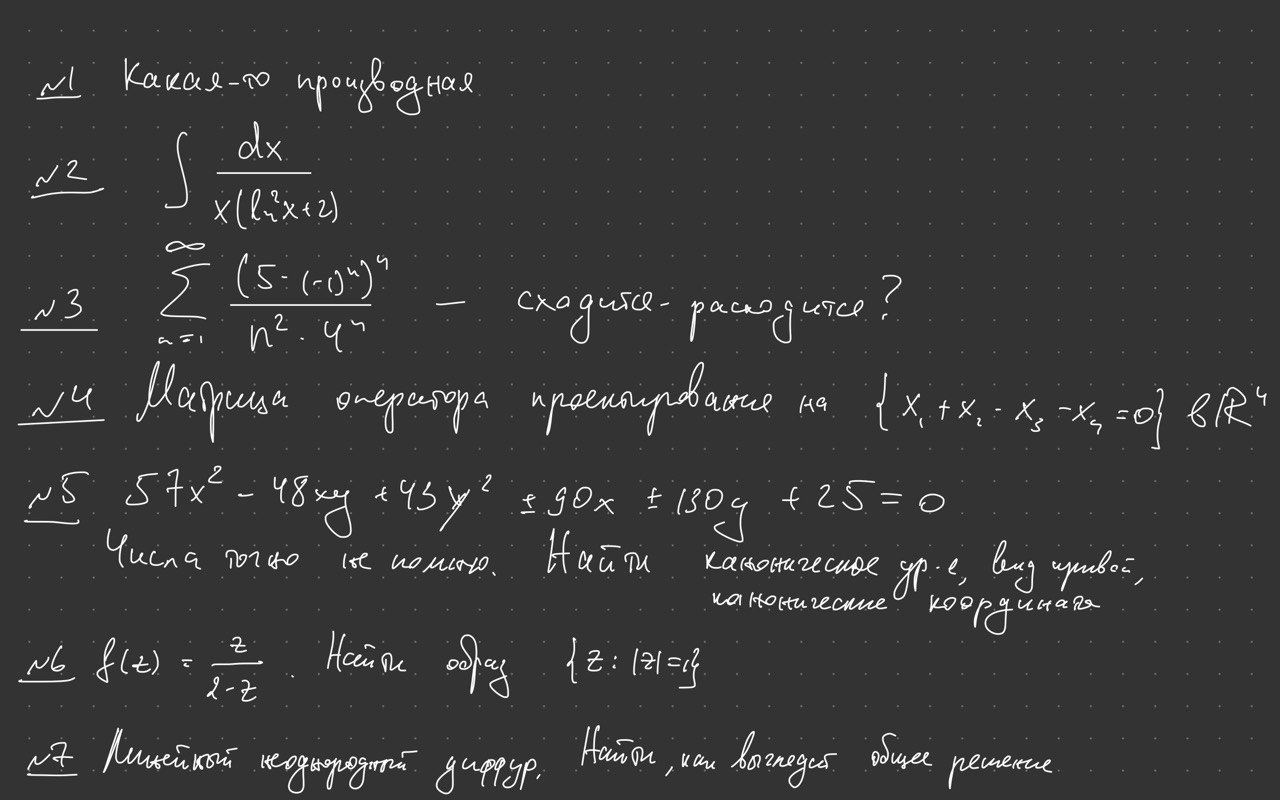 №1 Какая-то производная
№2 ∫ dx / x(ln²x+2)
№3 ∑_{n=1}^{∞} (5-(-1)ⁿ)ⁿ / n²·4ⁿ — сходится-расходится?
№4 Матрица оператора проектирования на {x₁+x₂-x₃-x₄=0} в ℝ⁴
№5 57x² - 48xy + 43y² ± 90x ± 130y + 25 = 0
Числа точно не помню. Найти каноническое ур-е, вид кривой,
канонические координаты
№6 f(z) = z / 2-z . Найти образ {z: |z|=1}
№7 Линейный неоднородный диффур. Найти, как выглядит общее решение